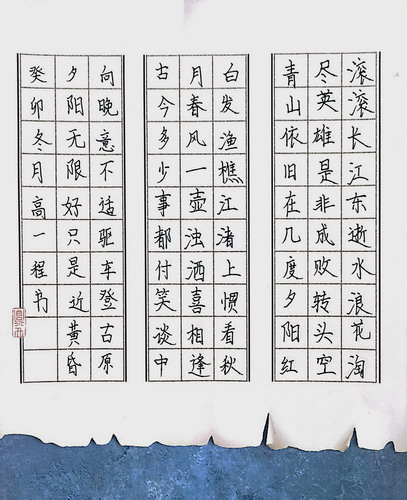 滚滚长江东逝水浪花淘
尽英雄是非成败转头空
青山依旧在几度夕阳红
白发渔樵江渚上惯看秋
月春风一壶浊酒喜相逢
古今多少事都付笑谈中
向晚意不适驱车登古原
夕阳无限好只是近黄昏
癸卯冬月高一程书